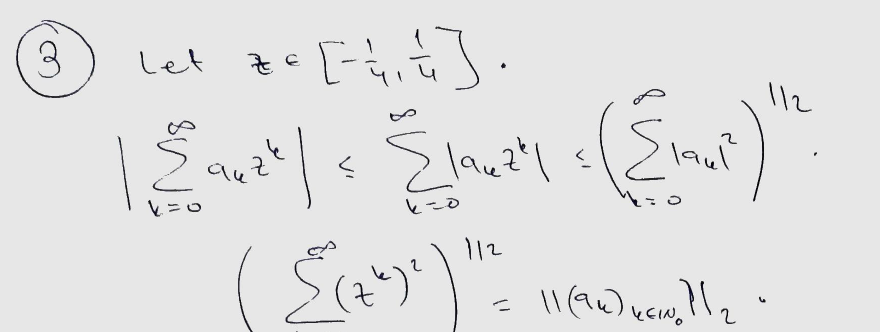 ③ Let z ∈ [-1/4, 1/4].
|∑_{k=0}^{∞} a_k z^k| ≤ ∑_{k=0}^{∞} |a_k z^k| ≤ (∑_{k=0}^{∞} |a_k|²)^{1/2} ·
(∑ (z^k)²)^{1/2} = ||(a_k)_{k∈ℕ₀}||₂ ·